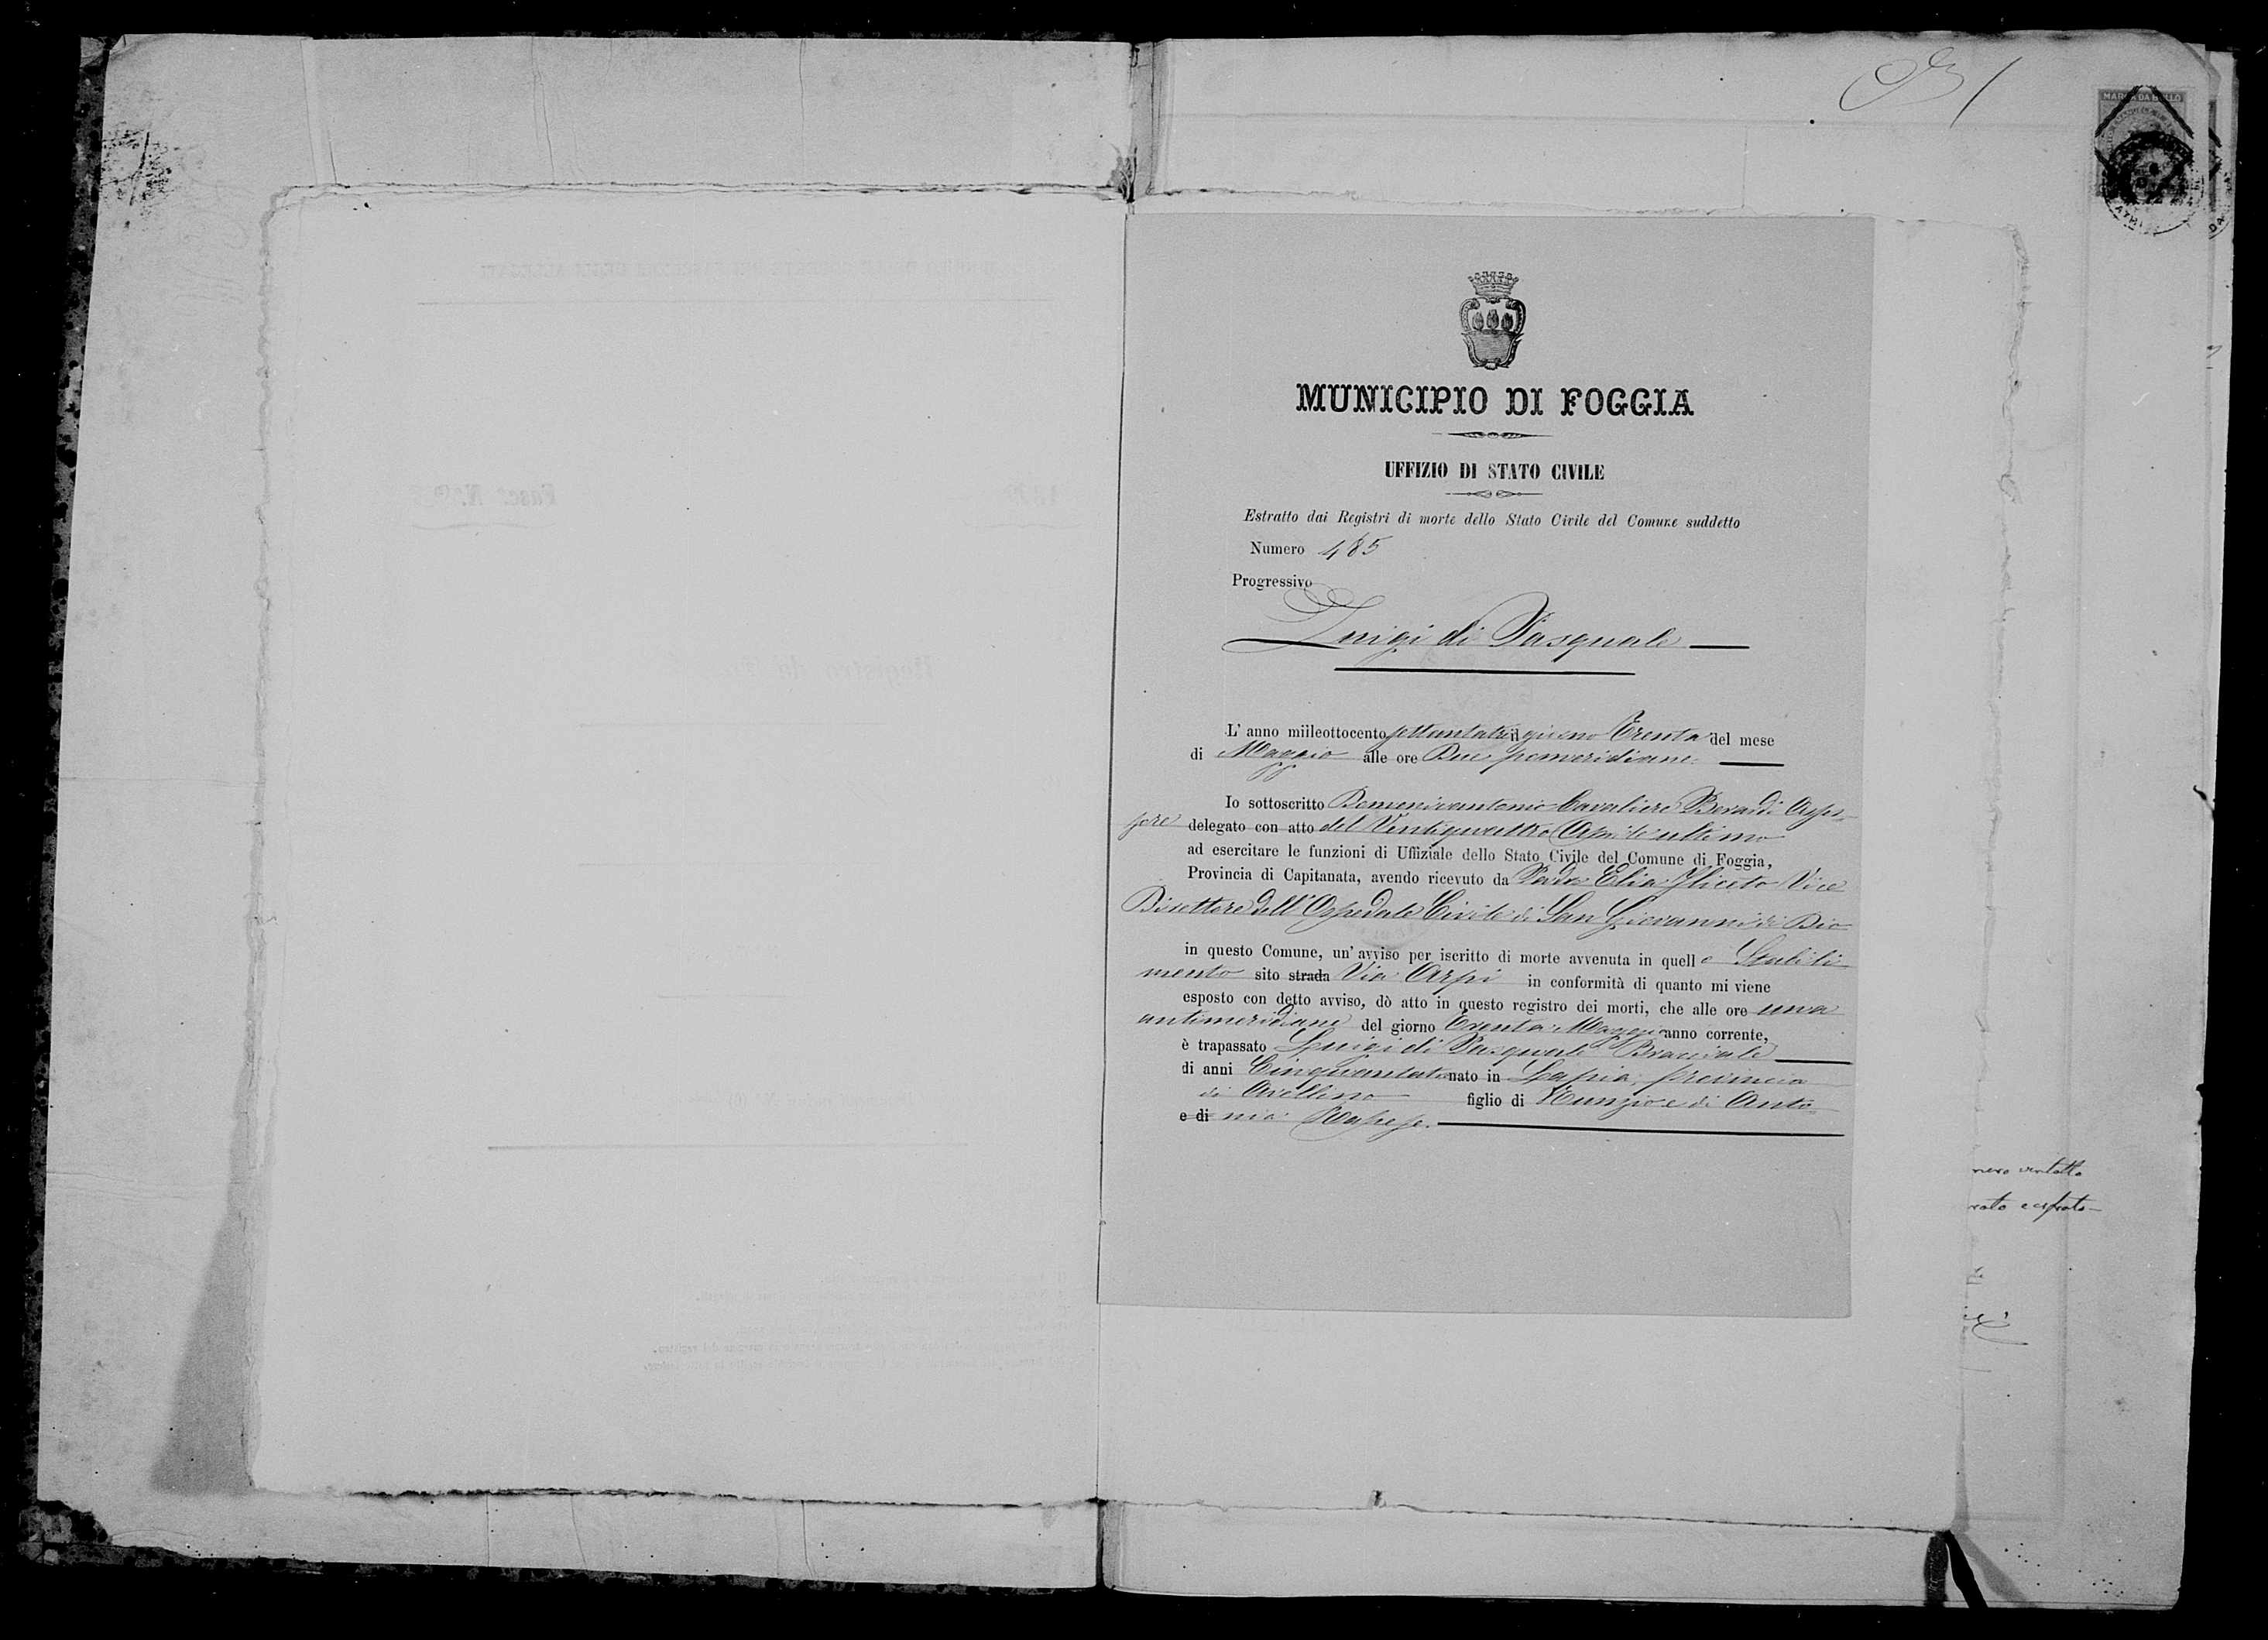 MARCA DA BOLLO
MUNICIPIO DI FOGGIA
UFFIZIO DI STATO CIVILE
Estratto dai Registri di morte dello Stato Civile del Comune suddetto
Numero 485
Progressivo
Luigi di Pasquale
L' anno miileottocento settantatre il giorno Trenta del mese
di Maggio alle ore Due pomeridiane
Io sottoscritto Domenicantonio Cavaliere Berardi
delegato con atto del Ventiquattro Aprile ultimo
ad esercitare le funzioni di Uffiziale dello Stato Civile del Comune di Foggia,
Provincia di Capitanata, avendo ricevuto da Padre Elia Vice
Direttore dell'Ospedale Civile di San Giovanni di Dio
in questo Comune, un' avviso per iscritto di morte avvenuta in quello Stabili
mento sito strada Via Arpi in conformità di quanto mi viene
esposto con detto avviso, dò atto in questo registro dei morti, che alle ore una
antimeridiane del giorno Trenta Maggio anno corrente,
è trapassato Luigi di Pasquale Bracciale
di anni Cinquanta nato in Lapia, provincia
di Avellino figlio di Nunzio e di Anto
e di nia
nero ventotto